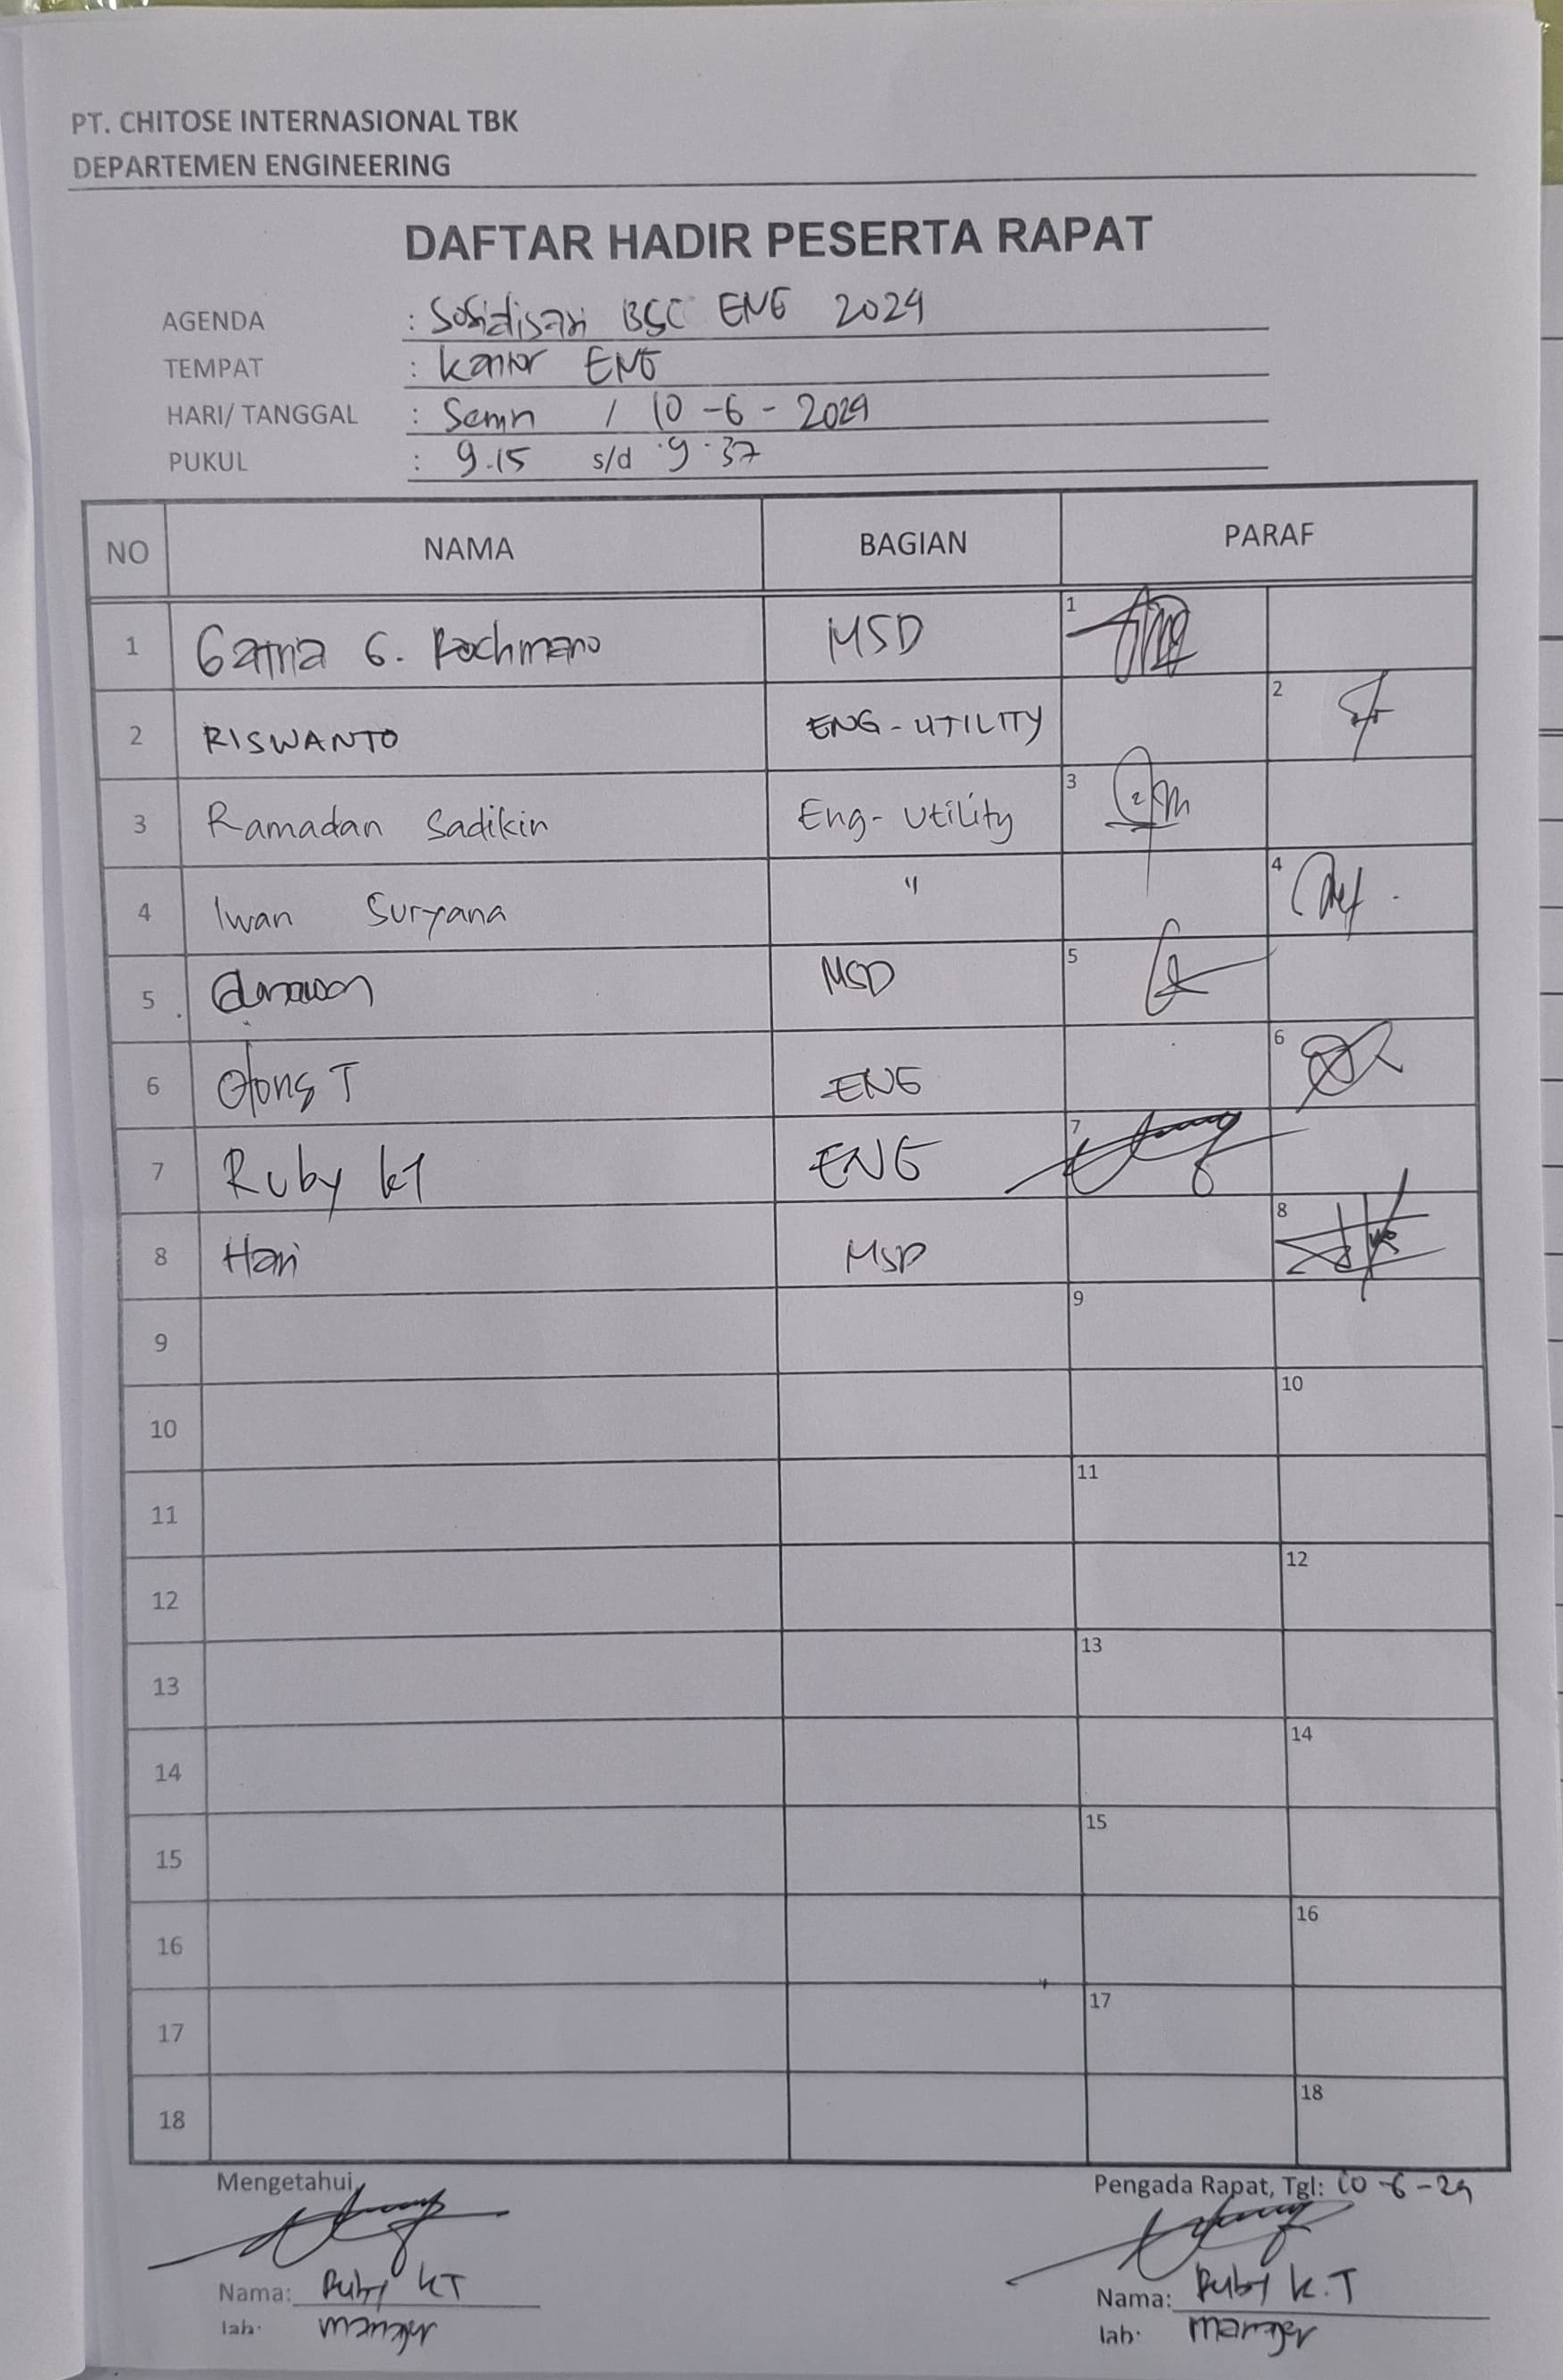 PT. CHITOSE INTERNASIONAL TBK
DEPARTEMEN ENGINEERING
DAFTAR HADIR PESERTA RAPAT
AGENDA : Sosialisasi BSC ENG 2024
TEMPAT : Kantor ENG
HARI/ TANGGAL : Senin / 10-6-2024
PUKUL : 9.15 s/d 9.37
NO NAMA BAGIAN PARAF
1 G. Rochmano MSD 1
2 RISWANTO ENG-UTILITY 2
3 Ramadan Sadikin Eng-Utility 3
4 Iwan Suryana " 4
5 MSD 5
6 T ENG 6
7 Ruby KT ENG 7
8 Hari MSD 8
9 9
10 10
11 11
12 12
13 13
14 14
15 15
16 16
17 17
18 18
Mengetahui,
Pengada Rapat, Tgl: 10-6-24
Nama: Ruby KT
Nama: Ruby K.T
Jab: manager
Jab: manager